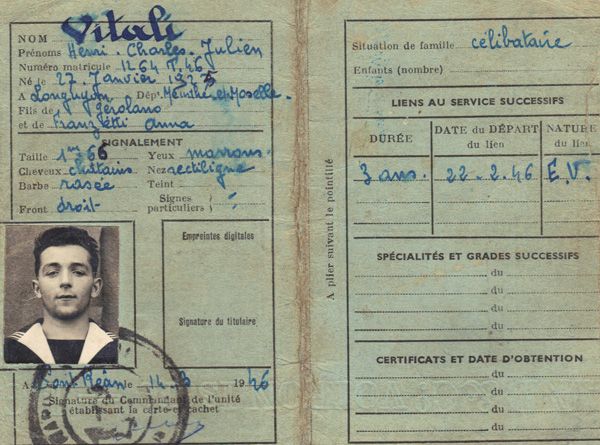 NOM Vitali
Prénoms Henri - Charles - Julien
Numéro matricule 1264 T.46
Né le 27 Janvier 1925
A Longuyon Dépt Meurthe et Moselle.
Fils de Gérolano
et de Franzetti Anna
SIGNALEMENT
Taille 1m66 Yeux marrons.
Cheveux chatains Nez rectiligne
Barbe rasée Teint
Front droit Signes
particuliers
Empreintes digitales
Signature du titulaire
A Pont Réan le 14-3 1946
Signature du Commandant de l'unité
établissant la carte et cachet
A plier suivant le pointillé
Situation de famille célibataire
Enfants (nombre)
LIENS AU SERVICE SUCCESSIFS
DURÉE DATE du DÉPART NATURE
du lien du lien
3 ans. 22-2-46 E.V.
SPÉCIALITÉS ET GRADES SUCCESSIFS
du
du
du
du
CERTIFICATS ET DATE D'OBTENTION
du
du
du